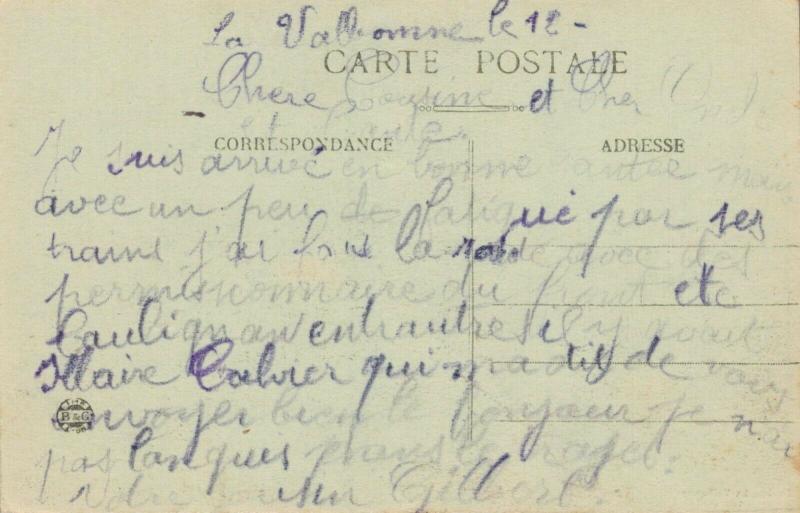 La Valbonne le 12 -
CARTE POSTALE
Chere Cousine et Cher
CORRESPONDANCE ADRESSE
Je suis arrivé en bonne santée mais
avec un peu de fatigué par ses
trains j'ai fais la route avec des
permissionnaire du front etc
entrautres il y avait
Cabrier qui ma dis de vous
B&G
envoyer bien le bonjour je n'ai
pas languis dans le trajet.
Votre cousin Gilbert.